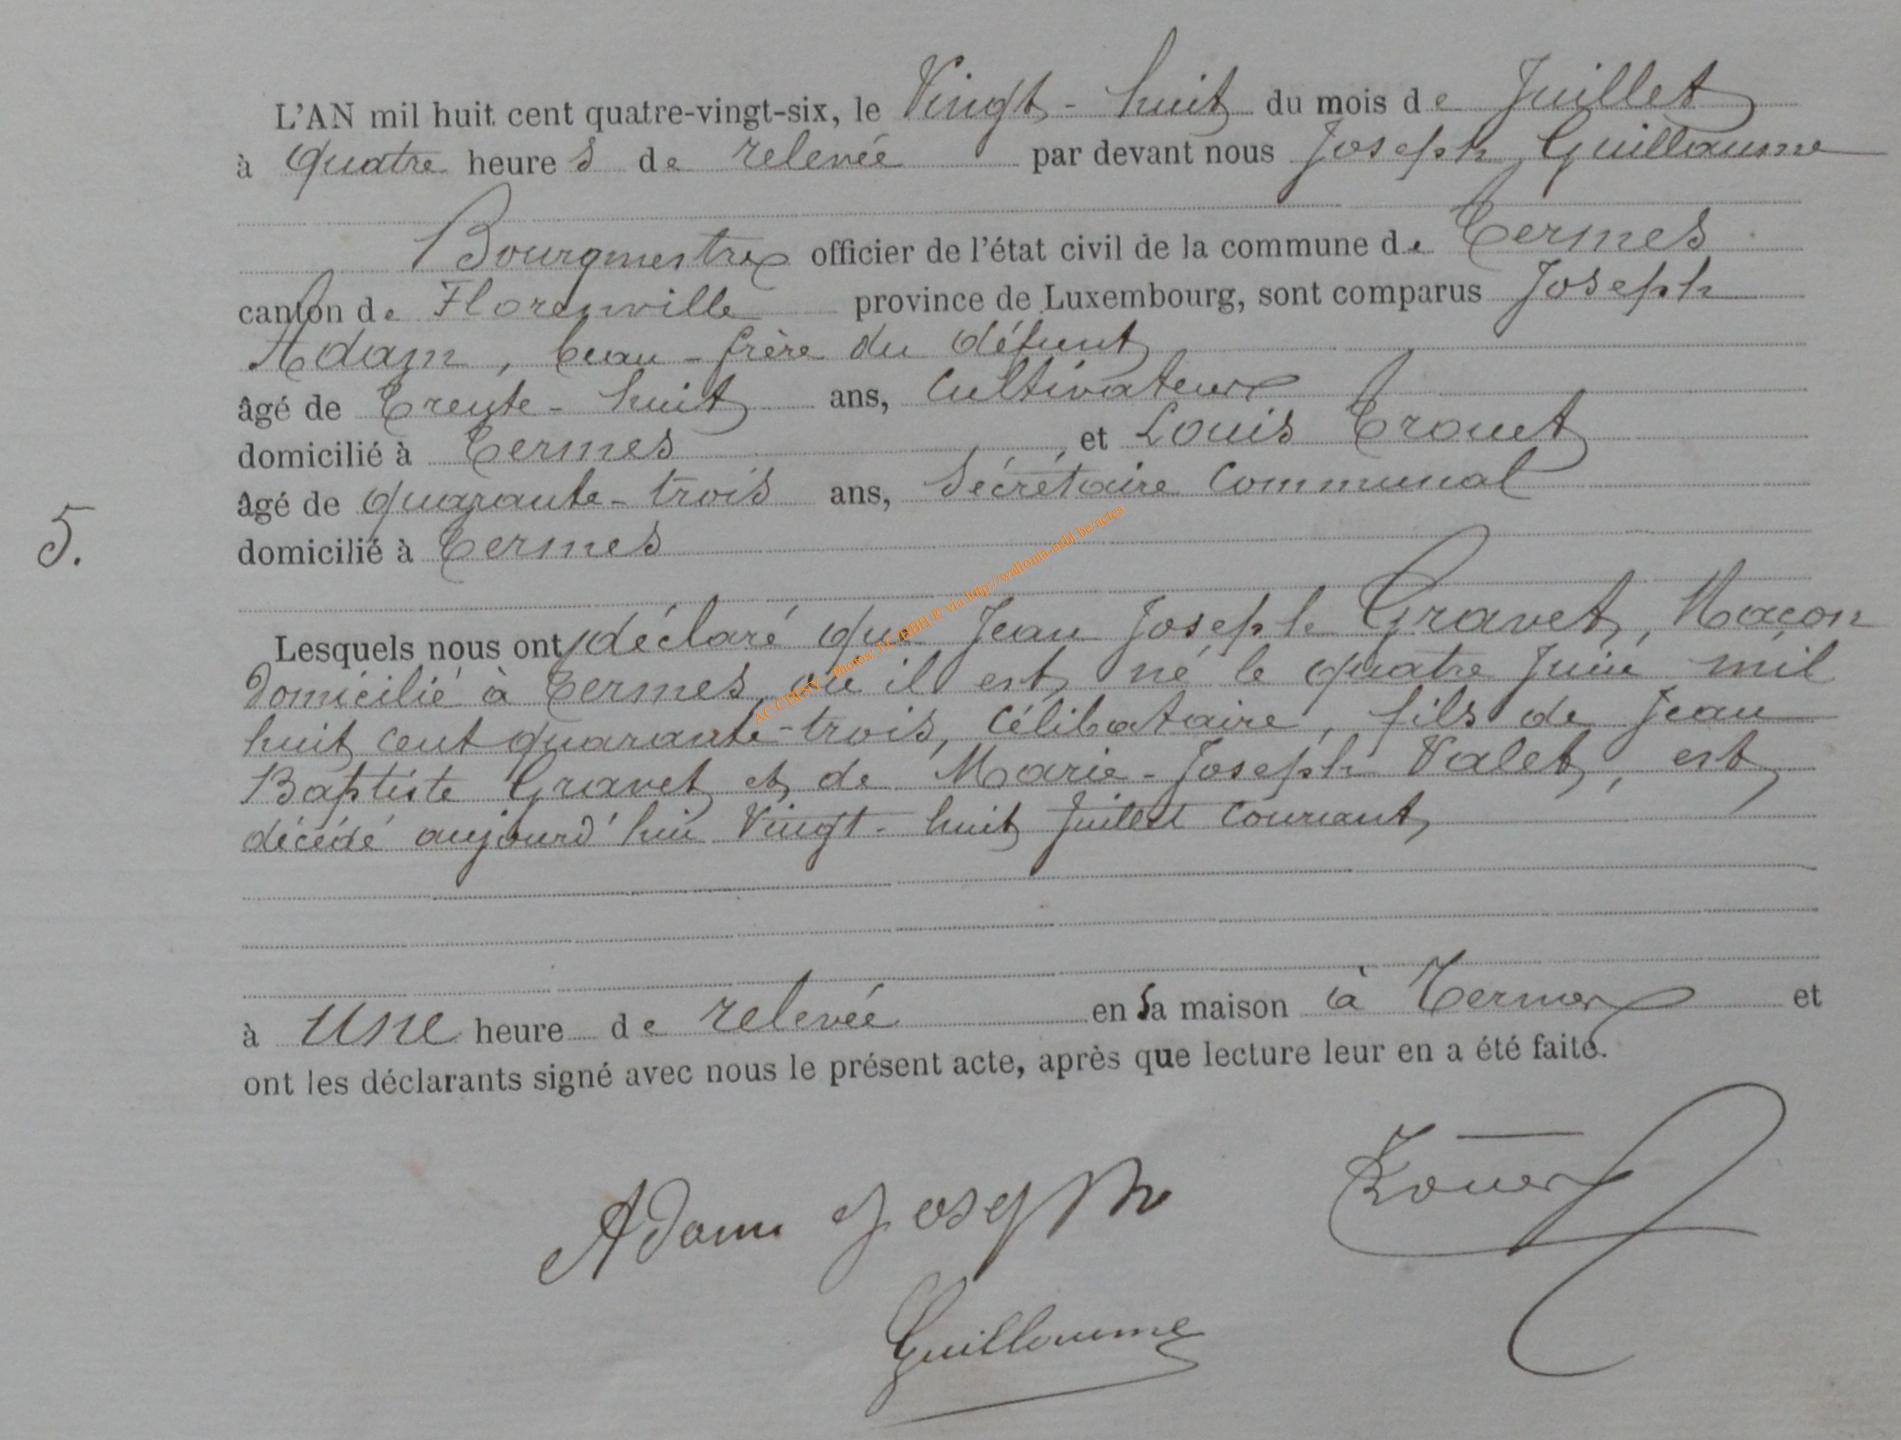 L'AN mil huit cent quatre-vingt-six, le Vingt-huit du mois de Juillet
à quatre heures de relevée par devant nous Joseph Guillaume
Bourgmestre officier de l'état civil de la commune de Termes
canton de Florenville province de Luxembourg, sont comparus Joseph
Adam, beau-frère du défunt
âgé de trente-huit ans, cultivateur
domicilié à Termes, et Louis Trouet
âgé de quarante-trois ans, Secrétaire Communal
5.
domicilié à Termes
Lesquels nous ont déclaré que Jean Joseph Gravet, Maçon
domicilié à Termes, où il est né le quatre Juin mil
huit cent quarante-trois, célibataire, fils de Jean
Baptiste Gravet et de Marie-Joseph Valet, est
décédé aujourd'hui Vingt-huit Juillet courant
à Une heure de relevée en sa maison à Termes et
ont les déclarants signé avec nous le présent acte, après que lecture leur en a été faite.
Adam Joseph
Trouet
Guillaume